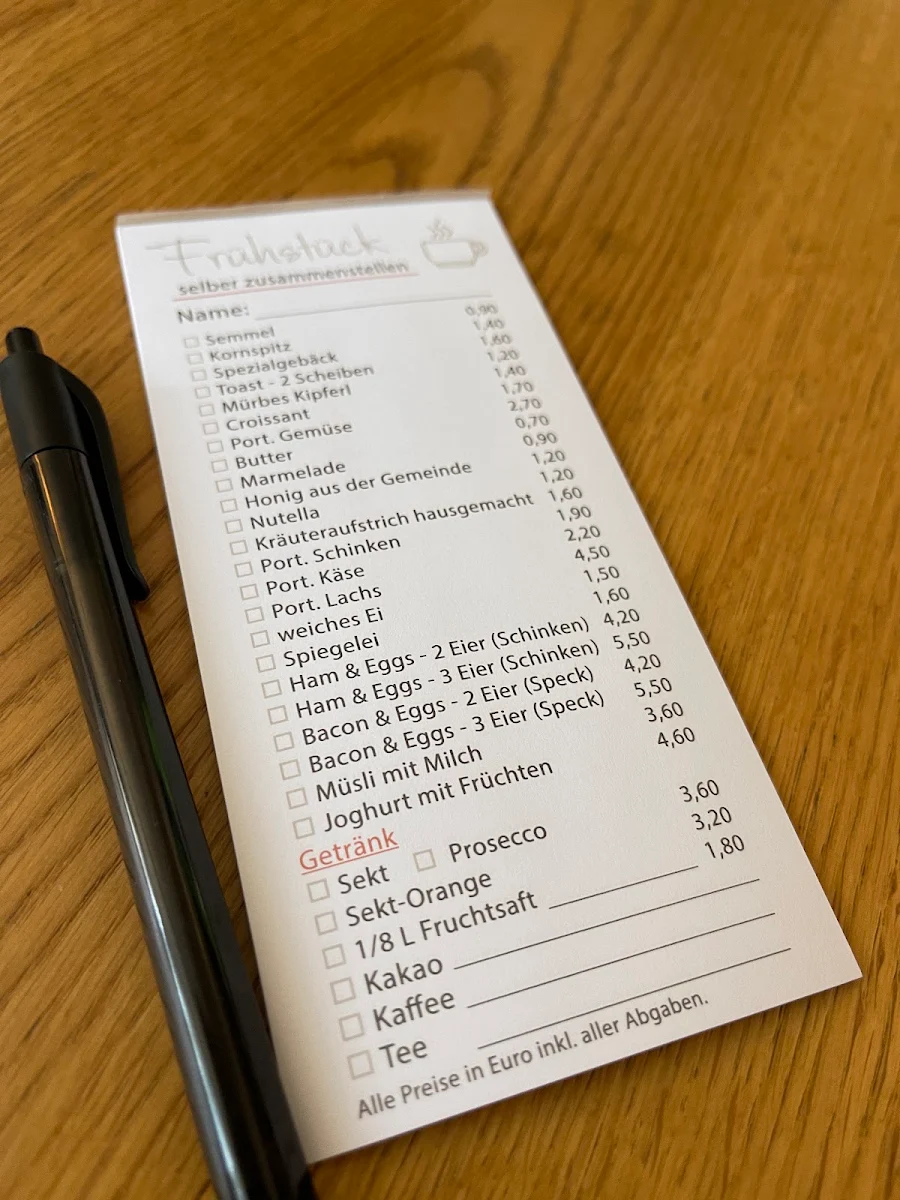 Frühstück
selber zusammenstellen
Name:
Semmel 0,90
Kornspitz 1,40
Spezialgebäck 1,60
Toast - 2 Scheiben 1,20
Mürbes Kipferl 1,40
Croissant 1,70
Port. Gemüse 2,70
Butter 0,70
Marmelade 0,90
Honig aus der Gemeinde 1,20
Nutella 1,20
Kräuteraufstrich hausgemacht 1,60
Port. Schinken 1,90
Port. Käse 2,20
Port. Lachs 4,50
weiches Ei 1,50
Spiegelei 1,60
Ham & Eggs - 2 Eier (Schinken) 4,20
Ham & Eggs - 3 Eier (Schinken) 5,50
Bacon & Eggs - 2 Eier (Speck) 4,20
Bacon & Eggs - 3 Eier (Speck) 5,50
Müsli mit Milch 3,60
Joghurt mit Früchten 4,60
Getränk
Sekt Prosecco 3,60
Sekt-Orange 3,20
1/8 L Fruchtsaft 1,80
Kakao
Kaffee
Tee
Alle Preise in Euro inkl. aller Abgaben.